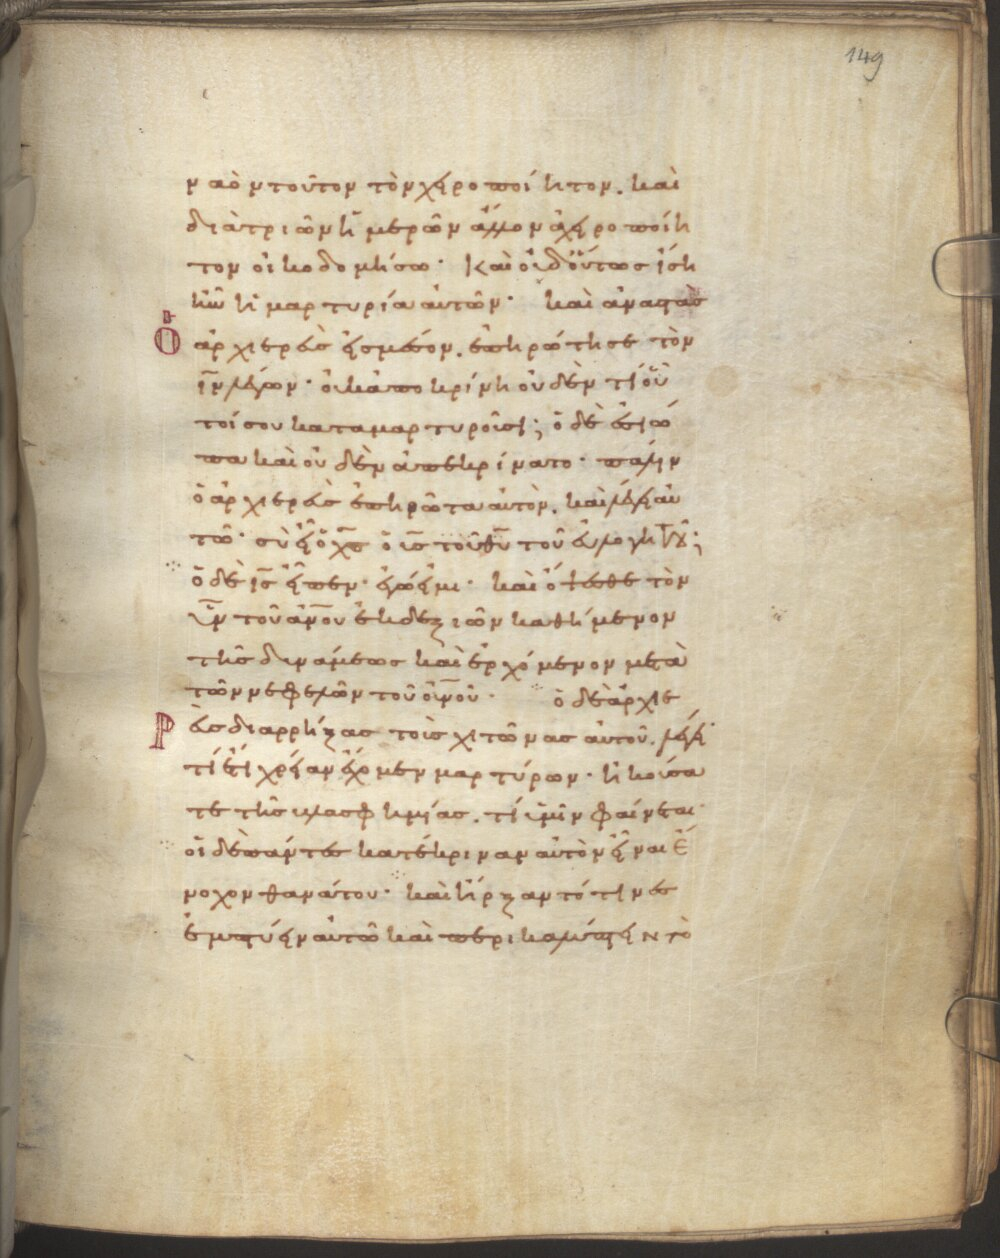 149
ναὸν τοῦτον τὸν χειροποίητον. καὶ
διὰ τριῶν ἡμερῶν ἄλλον ἀχειροποίη
τον οἰκοδομήσω· Καὶ οὐδ οὕτως ἴση
ἦν ἡ μαρτυρία αὐτῶν· καὶ ἀναστὰς
ὁ ἀρχιερεὺς εἰς μέσον. ἐπηρώτησε τὸν
ιν λέγων· οὐκ ἀποκρίνη οὐδὲν τί οὗ
τοί σου καταμαρτυροῦσι; ὁ δὲ ἐσιώ
πα καὶ οὐδὲν ἀπεκρίνατο· πάλιν
ὁ ἀρχιερεὺς ἐπηρώτα αὐτὸν. καὶ λέγει αυ
τῶ· σὺ εἶ ὁ χς ὁ υς τοῦ θυ τοῦ εὐλογητοῦ;
ὁ δὲ ις εἶπεν· ἐγώ εἰμι· καὶ ὄψεσθε τὸν
υν τοῦ ανου ἐκ δεξιῶν καθήμενον
τῆς δυνάμεως καὶ ἐρχόμενον μετὰ
τῶν νεφελῶν τοῦ ουνου· ὁ δὲ ἀρχιε
Ρεὺς διαρρήξας τοὺς χιτῶνας αὐτοῦ. λέγει·
τί ἔτι χρείαν ἔχομεν μαρτύρων· ἠκούσα
τε τῆς βλασφημίας. τί ὑμῖν φαίνεται·
οἱ δὲ πάντες κατέκριναν αὐτὸν εἶναι ἔ
νοχον θανάτου· καὶ ἤρξαντό τινες
ἐμπτύειν αὐτῶ καὶ περικαλύπτειν τὸ